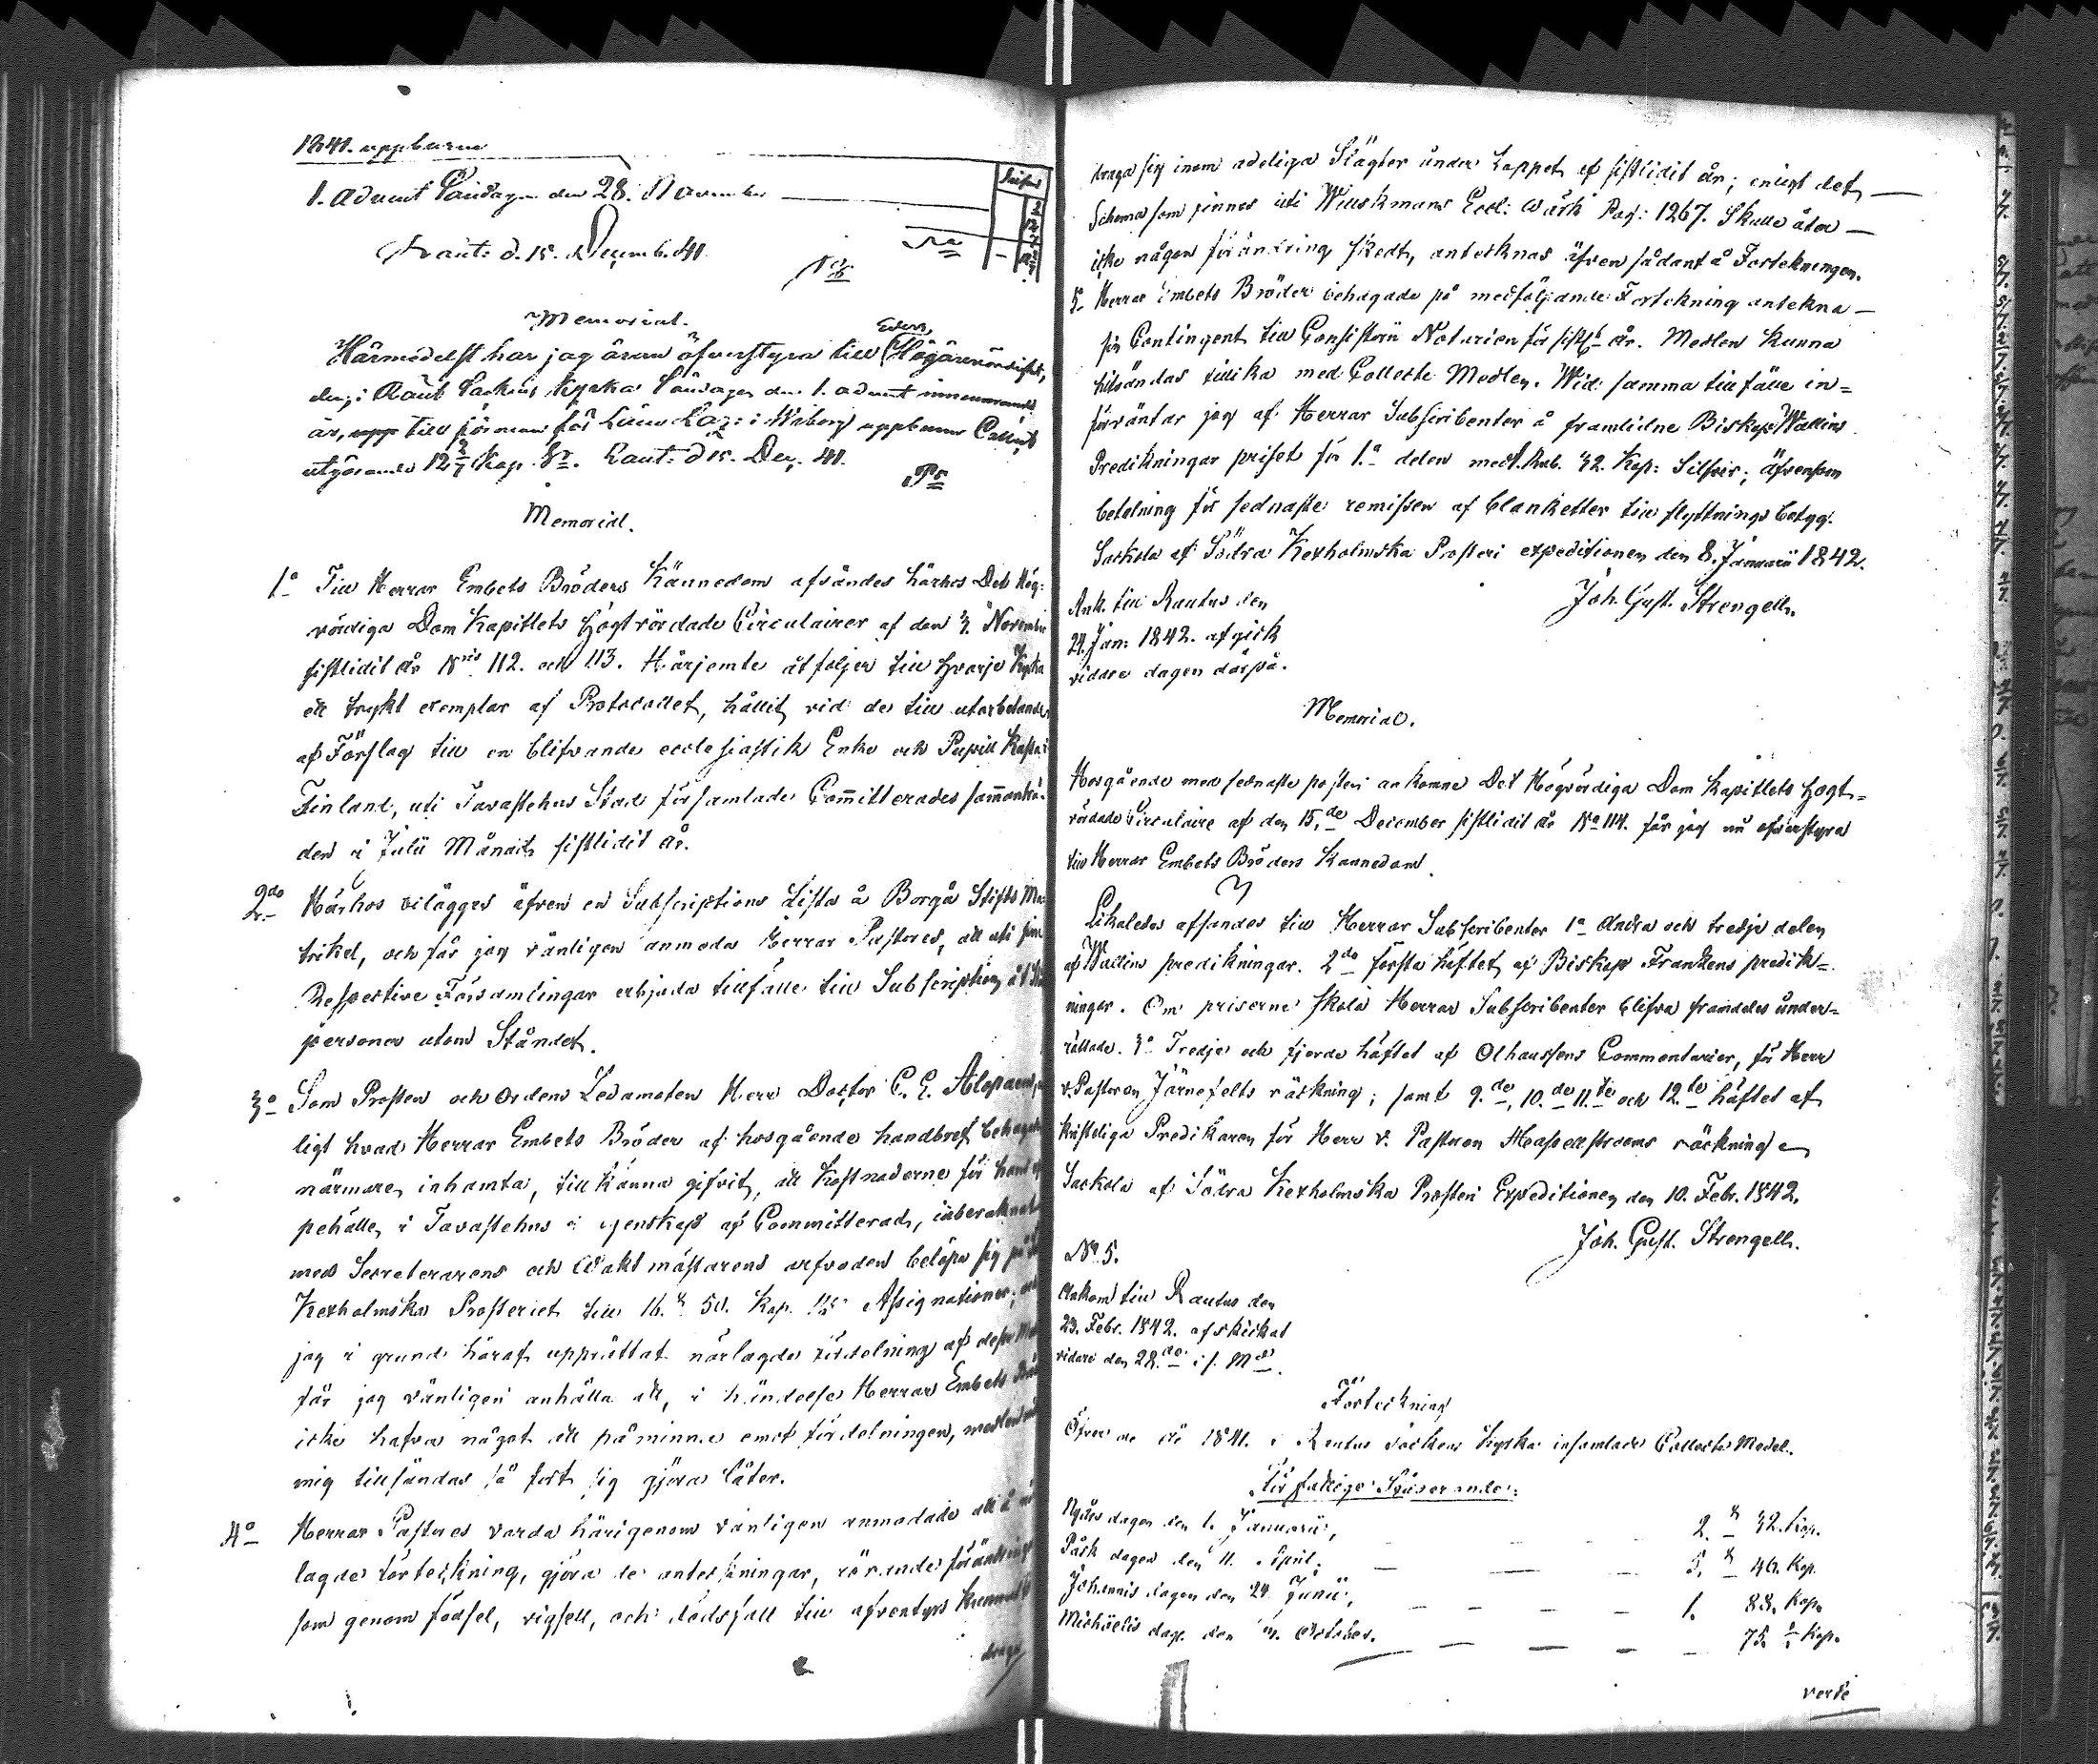 1841. uppburne
1. Advent Söndagen den 28. November
Raut: d. 15. Decemb. 41.
Memorial.
Härmedelst har jag äran öfverstyra till Eders Högärevördighet,
den i Raut Sockens Kyrka Söndagen den 1. advent innevarande
år, till förmån för Läns Laz: i Wiborg uppburne Collect
utgörande 12 2/7 Kop. Sr. Raut: d 15. Dec. 41.
Memorial.
1o Till Herrar Embets Bröders Kännedom afsändes härhos Det Hög-
vördiga Dom Kapitlets Högtvördade Circulairer af den 3. November
sistlidit år Nris 112. och 113. Härjemte åtföljer till hvarje Kyrka
ett trykt exemplar af Protocollet, hållit vid de till utarbetande
af Förslag till en blifvande ecclesiastik Enke och Pupill Kassa i
Finland, uti Tavastehus Stad församlade Committerades samman-
den i Julii Månad sistlidit år.
2do Härhos bilägges äfven en Subscriptions Lista å Borgå Stifts Ma-
trikel, och får jag vänligen anmoda Herrar Pastores, att uti sina
Respective Församlingar erbjuda tillfälle till Subscription åt
personer utom Ståndet.
3o Som Prosten och Ordens Ledamoten Herr Doctor C. G. Alopaeus,
ligt hvad Herrar Embets Bröder af hosgående handbref behagade
närmare inhämta, tillkänna gifvit, att Kostnaderne för hans
pehälle i Tavastehus i egenskap af Committerad, inberäknat
med Secreterarens och Waktmästarens arfvoden belöpa sig på
Kexholmska Prosteriet till 16. R. 50. Kop. Assignationer, och
jag i grund häraf upprättat närlagde fördelning af dessa
får jag vänligen anhålla att, i händelse Herrar Embets
icke hafva något att påminna emot fördelningen, medlen
mig tillsändas så fort sig göra låter.
4o Herrar Pastores varda härigenom vänligen anmodade att å
lagde förteckning, göra de anteckningar, rörande förändringar
som genom födsel, vigsel, och dödsfall till äfventyrs kunnat
draga
draga sig inom adeliga Slägter under loppet af sistlidit år; enligt det
Schema som finnes uti Wiuskmans Eccl: Wärk Pag: 1267. Skulle åter
icke någon förändring skedt, antecknas äfven sådant å Förtekningen.
5. Herrar Embets Bröder behagade på medföljande Förtekning antekna
sin Contingent till Consistorii Notarien för sistl. år. Medlen kunna
hitsändas tillika med Collecte Medlen. Wid samma tillfälle in-
förväntar jag af Herrar Subscribenter å framlidne Biskop Wallins
Predikningar priset för 1.a delen med 1. Rub. 32. Kop: Silfver; äfvensom
betalning för sednaste remissen af blanketter till flyttnings betyg.
Sackola af Södra Kexholmska Prosteri expeditionen den 8. Januarii 1842.
Joh. Gust. Strengell.
Ank. till Rautus den
24. Jan: 1842. afgick
vidare dagen därpå.
Memorial.
Hosgående med sednaste posten ankomne Det Högvördiga Dom Kapitlets Högt-
vördade Circulaire af den 15.de December sistlidit år No 114. får jag nu öfverstyra
till Herrar Embets Bröders Kännedom.
Likaledes afsändes till Herrar Subscribenter 1o Andra och tredje delen
af Wallins predikningar. 2do första häftet af Biskop Franzens predik-
ningar. Om priserne skola Herrar Subscribenter blifva framdeles under-
rättade. 3o Tredje och fjerde häftet af Olhaussens Commentarier, för Herr
v. Pastoren Järnefelts räkning; samt 9.de, 10.de 11.te och 12.te häftet af
Kristeliga Predikaren för Herr v. Pastoren Hasselstroms räckning
Sackola af Södra Kexholmska Prosteri Expeditionen den 10. Febr. 1842.
Joh. Gust. Strengell.
No 5.
Ankom till Rautus den
23. Febr. 1842. afskickat
vidare den 28.de i s. Md.
Förteckning
Öfver de år 1841. i Rautus Sockens Kyrka insamlade Collecte Medel.
För fattige Resande:
Nyårs dagen den 1. Januarii, 2. R 32. Kop.
Påsk dagen den 11. April. 5. R 46. Kop.
Johannis dagen den 24 Junii, 1. 88. Kop.
Michaelis dag. den October. 75. Kop.
verte